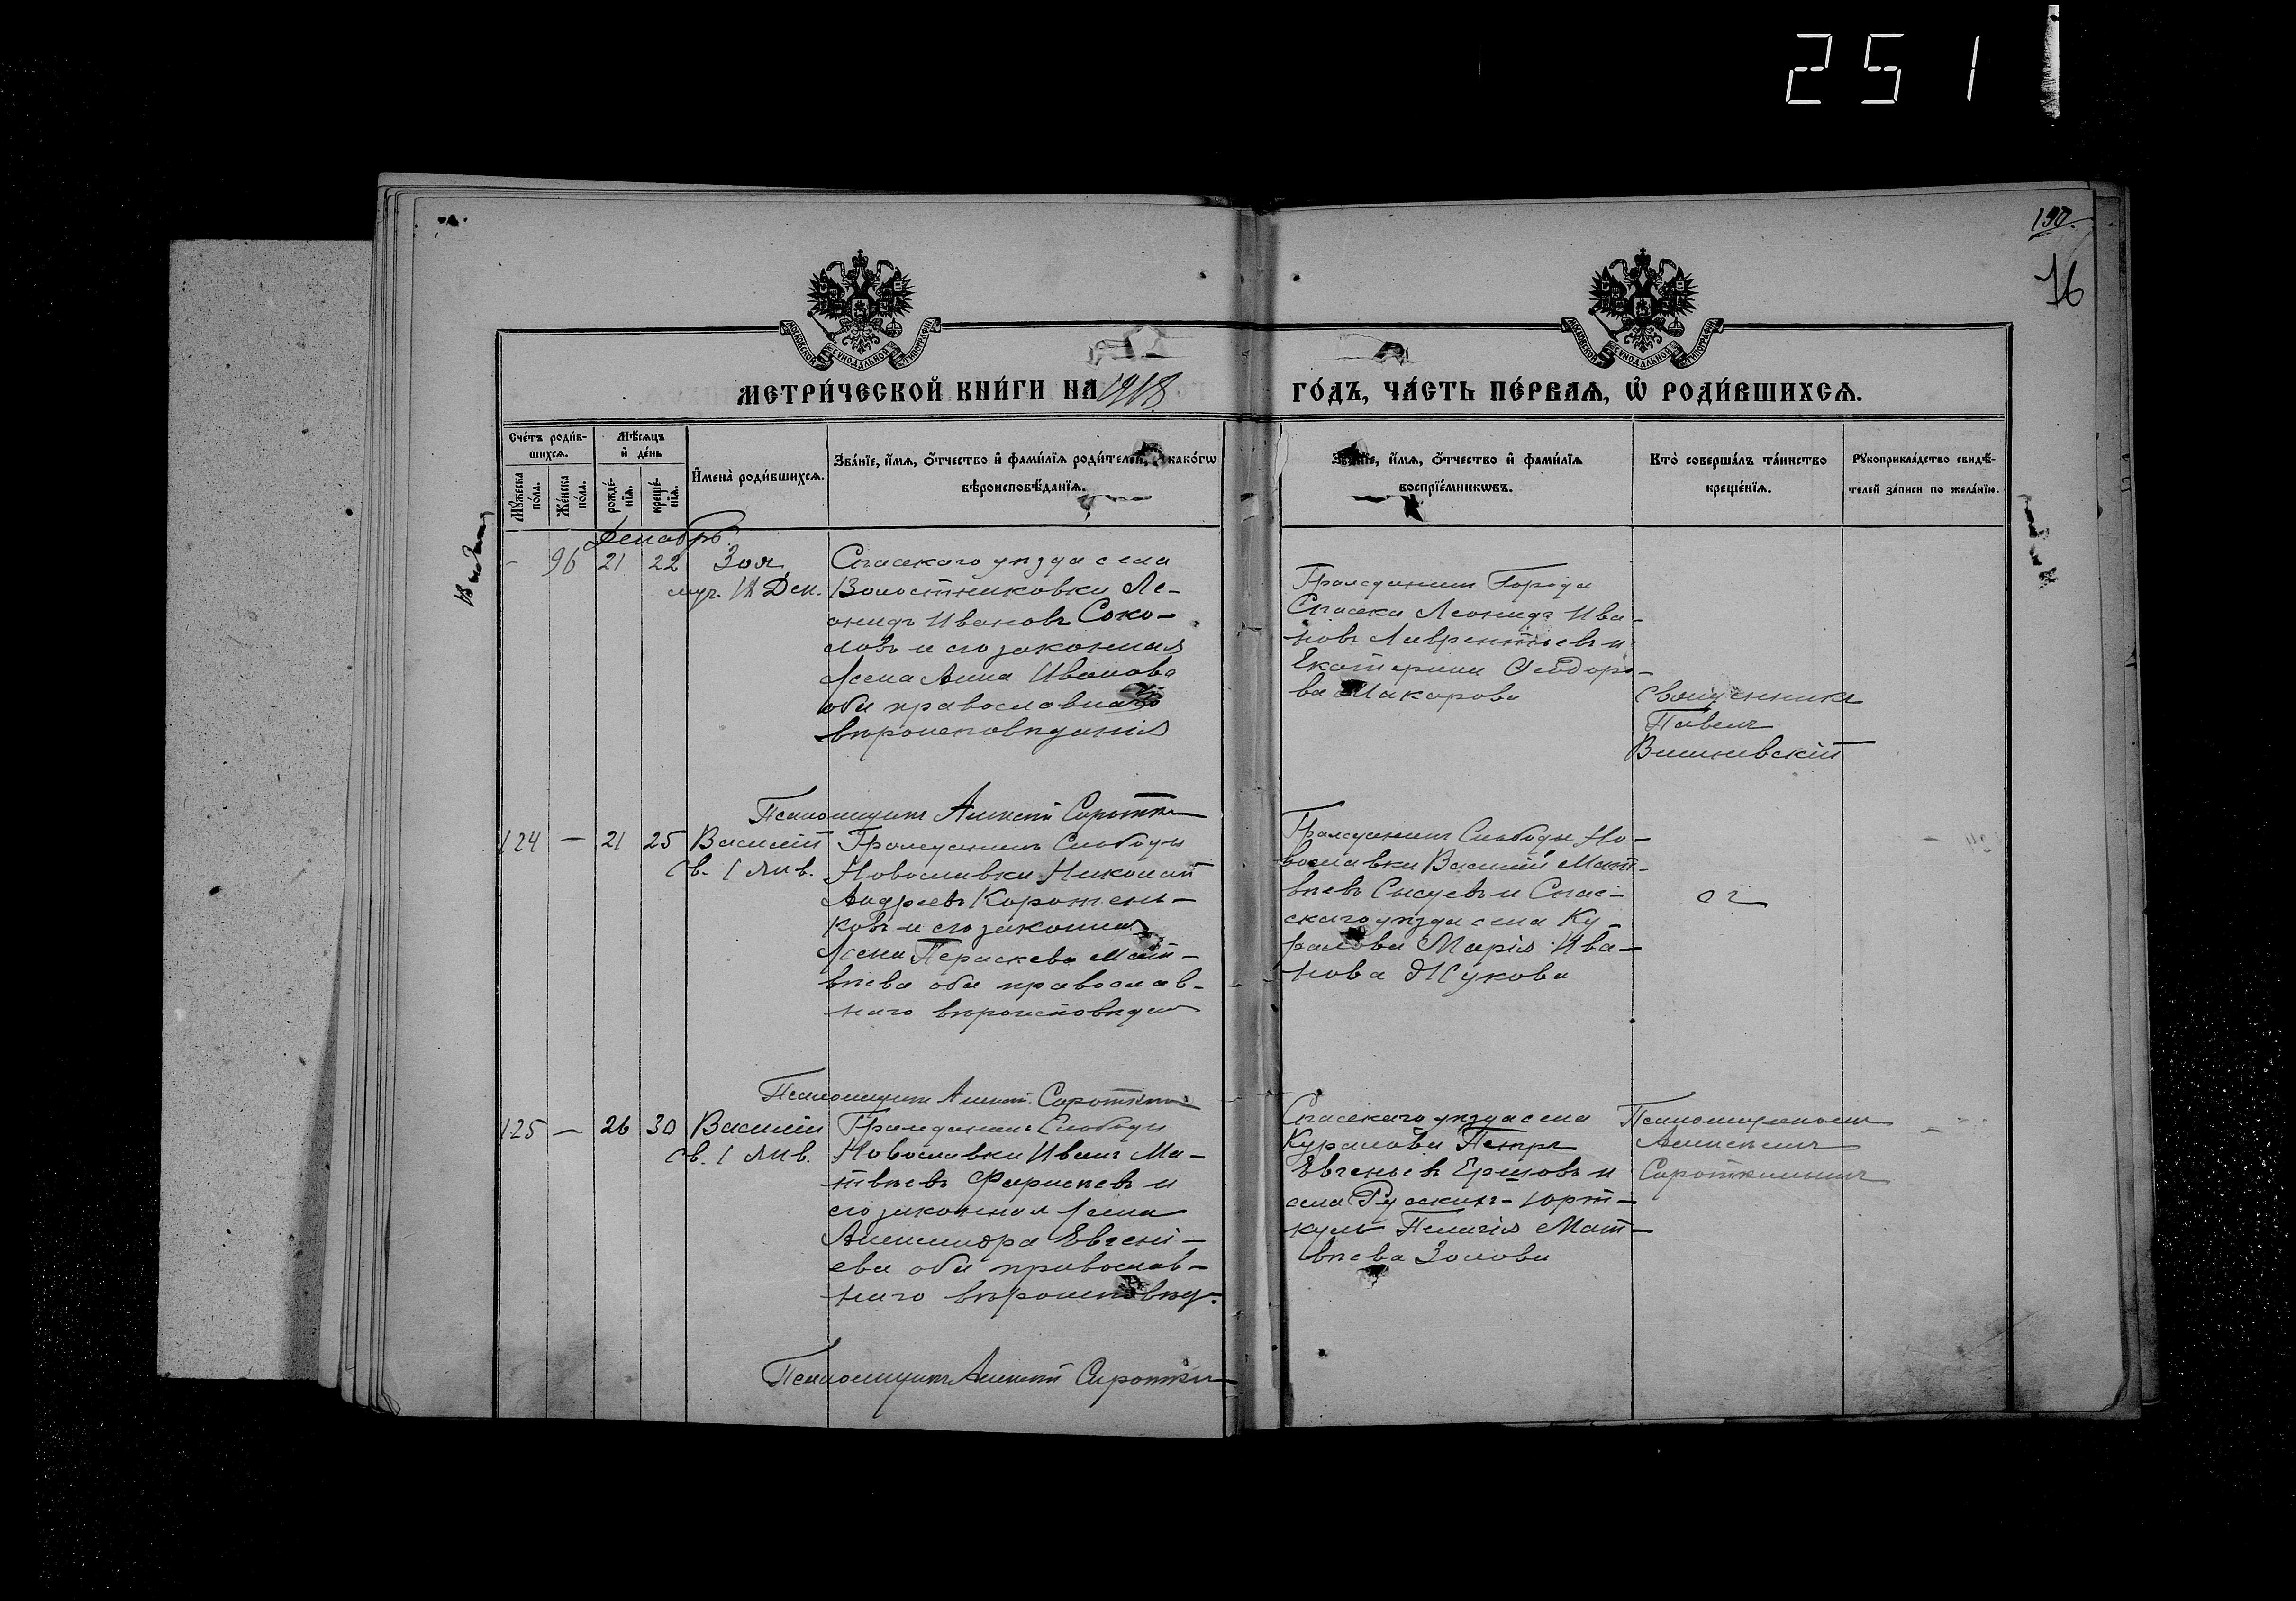 251
190.
76
МОСКОВСКОЙ СУНОДАЛЬНОЙ ТИПОГРАФІИ
МОСКОВСКОЙ СУНОДАЛЬНОЙ ТИПОГРАФІИ
МЕТРИ́ЧЕСКОЙ КНИ́ГИ НА 1918
ГО́ДЪ, ЧА́СТЬ ПЕ́РВАѦ, Ѽ РОДИ́ВШИХСѦ.
Сче́тъ роди́в-
шихсѧ.
Мѹ́жеска по́ла.
Же́нска по́ла.
Мѣ́сѧцъ
и҆ де́нь
рожде́-
нїѧ.
креще́-
нїѧ.
И҆мена̀ роди́вшихсѧ.
Зва́нїе, и҆́мѧ, ѻ҆́тчество и҆ фами́лїѧ роди́телей, како́гѡ
вѣроисповѣ́данїѧ.
и҆́мѧ, ѻ҆́тчество и҆ фами́лїѧ
воспрїе́мникѡвъ.
Кто̀ соверша́лъ та́инство
креще́нїѧ.
Рѹкоприкла́дство свидѣ́-
телей за́писи по жела́нїю.
Декабрь
- 96 21 22 Зоя
муч. 18 Дек.
Спасскаго уѣзда села
Волостниковки Ле-
онидъ Ивановъ Соко-
ловъ и его законная
жена Анна Иванова
оба православнаго
вѣроисповѣданія
Гражданинъ Города
Спасска Леонидъ Ива-
новъ Лаврентьевъ и
Екатерина Ѳеодоро-
ва Макарова
Священникъ
Павелъ
Вишневскій
Псаломщикъ Алексѣй Сироткин
124 — 21 25 Василій
св. 1 янв.
Гражданинъ Слободы
Новославки Николай
Андреевъ Коротень-
ковъ и его законная
жена Параскева Мат-
вѣева оба православ-
наго вѣроисповѣдан
Гражданинъ Слободы Но-
вославки Василій Мат-
вѣевъ Сысуевъ и Спас-
скаго уѣзда села Ку-
ралова Марія Ива-
нова Жукова
Псаломщикъ Алексѣй Сироткинъ
125 — 26 30 Василій
св. 1 янв.
Гражданинъ Слободы
Новославки Иванъ Ма-
твѣевъ Фарисѣевъ и
его законная жена
Александра Евгені-
ева оба православ-
наго вѣроисповѣд.
Спасскаго уѣзда села
Куралова Петръ
Евгеньевъ Ершовъ и
села Русскихъ-Юрт-
куль Пелагія Мат-
вѣева Золова
Псаломщикомъ
Алексѣемъ
Сироткинымъ
Псаломщикъ Алексѣй Сироткин